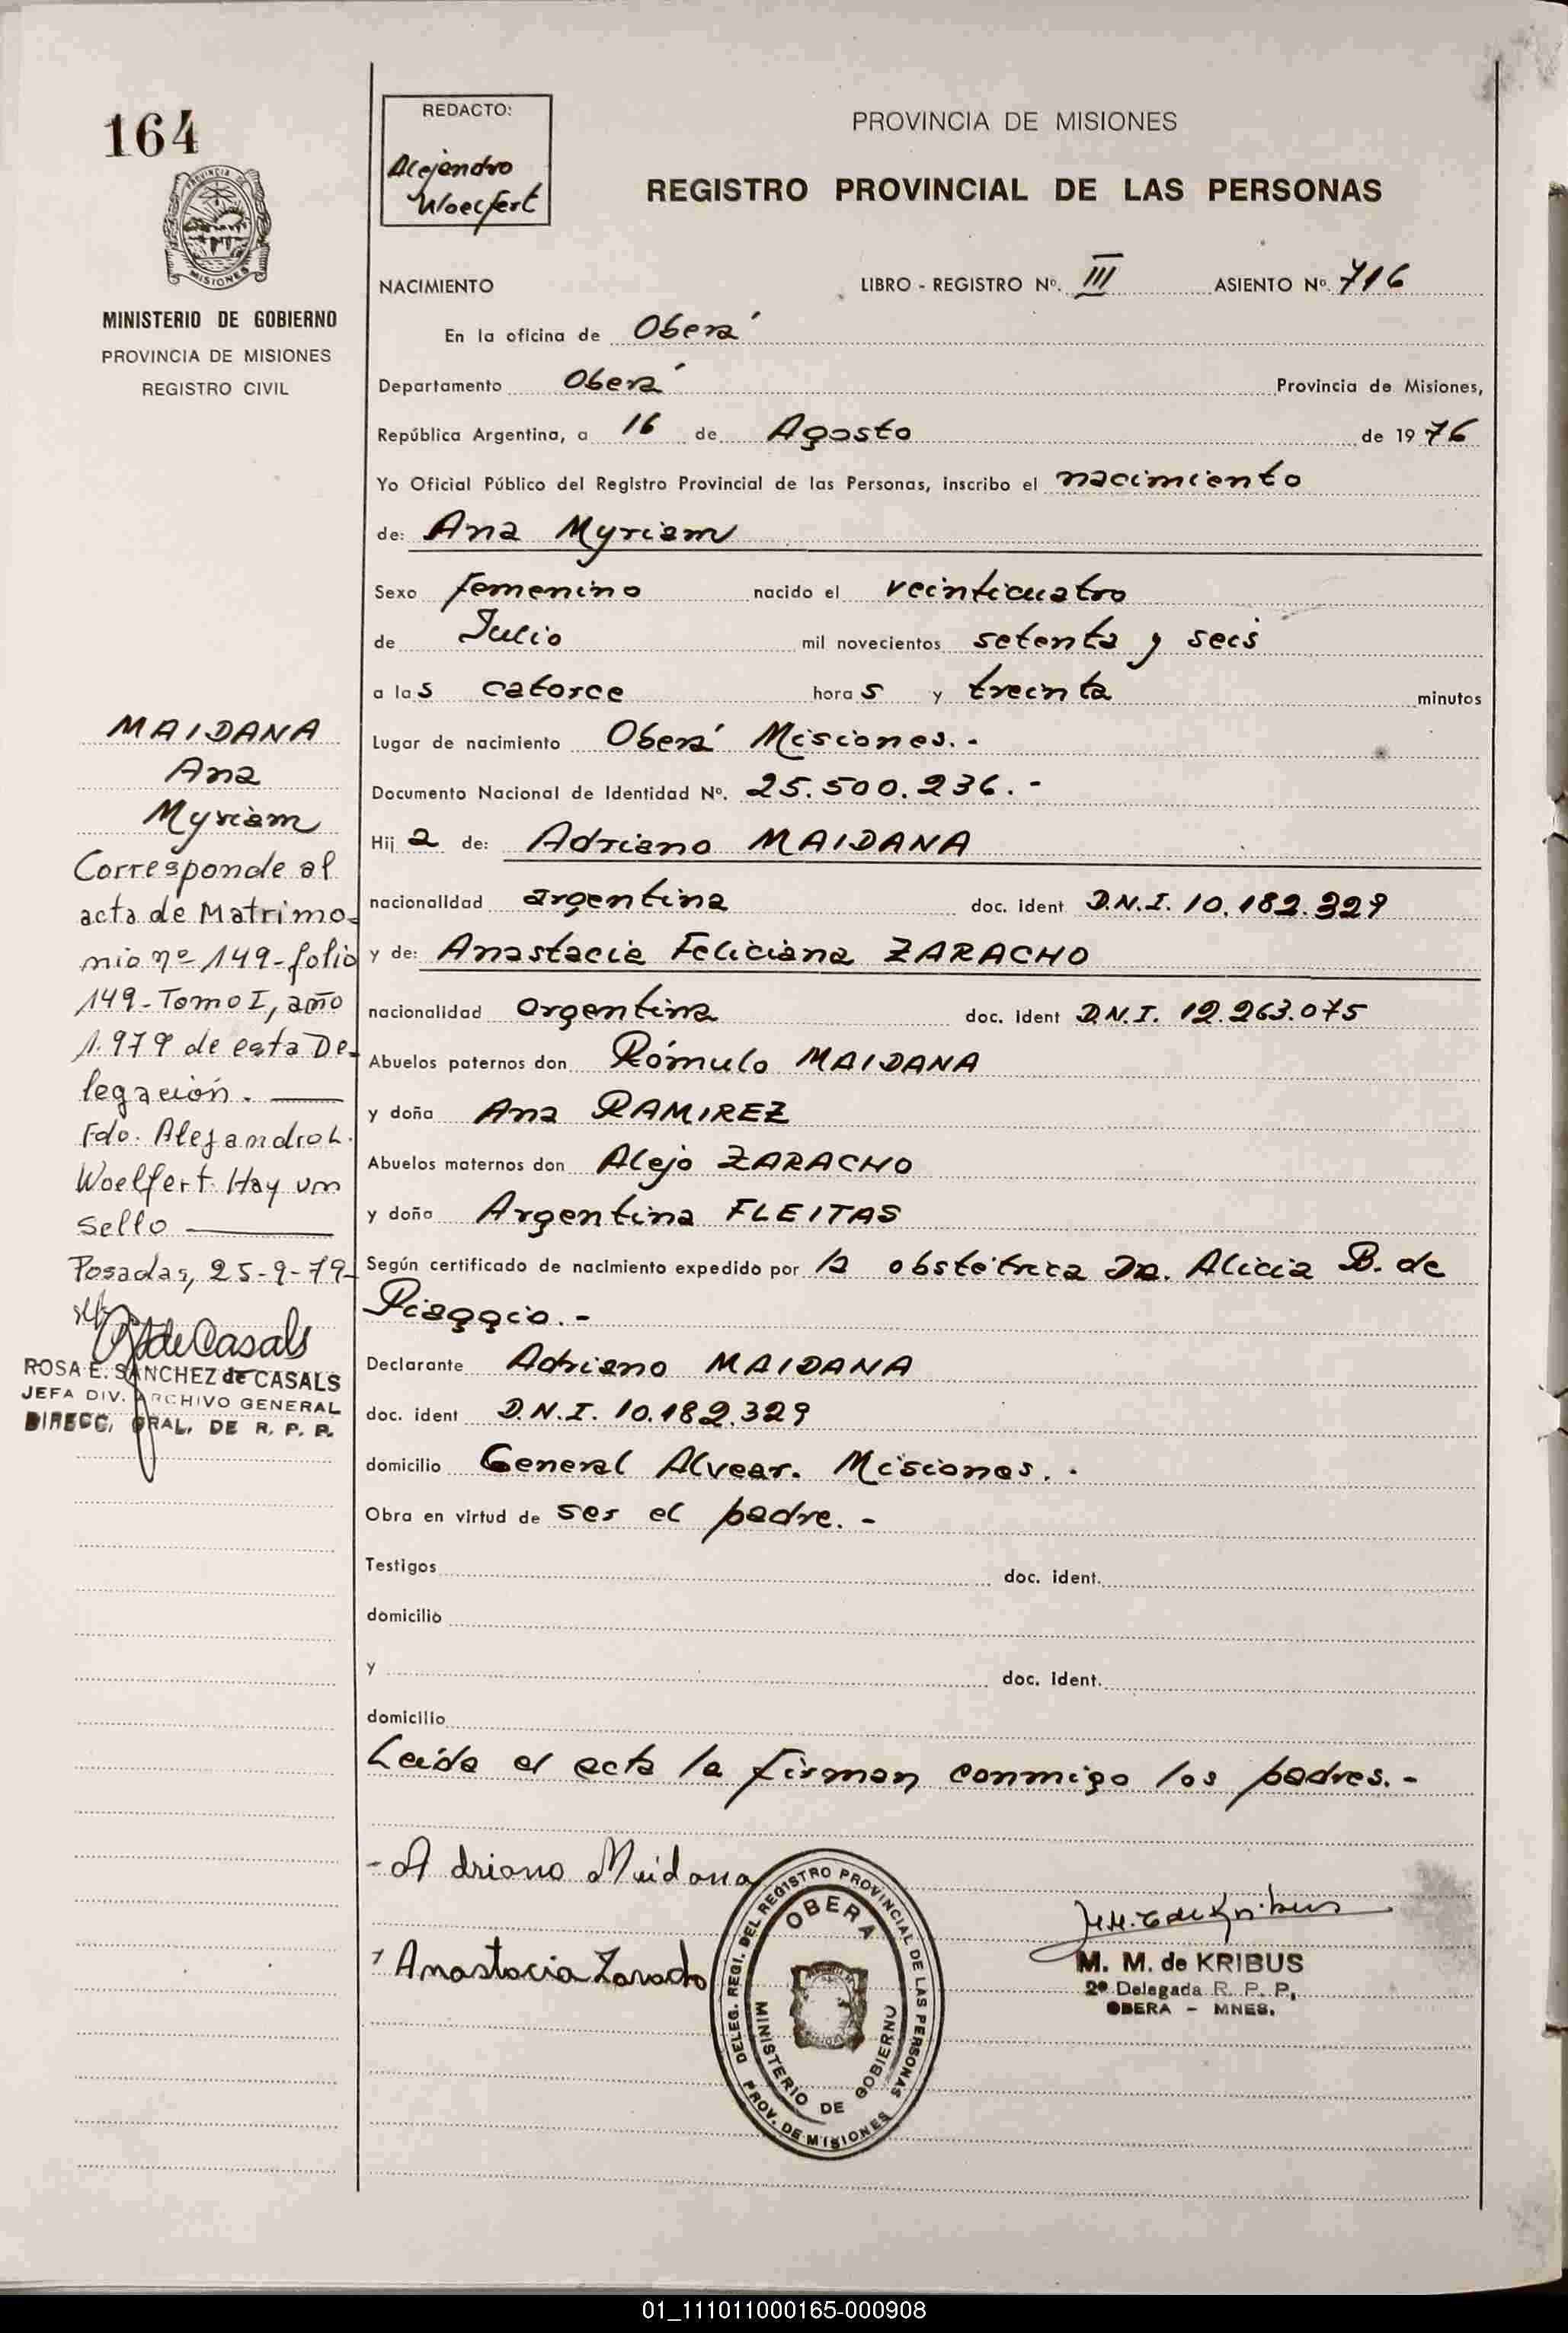 164
PROVINCIA DE
MISIONES
MINISTERIO DE GOBIERNO
PROVINCIA DE MISIONES
REGISTRO CIVIL
REDACTO:
Alejandro
Woelfert
PROVINCIA DE MISIONES
REGISTRO PROVINCIAL DE LAS PERSONAS
NACIMIENTO LIBRO - REGISTRO Nº. III ASIENTO Nº. 716
En la oficina de Oberá
Departamento Oberá Provincia de Misiones,
República Argentina, a 16 de Agosto de 1976
Yo Oficial Público del Registro Provincial de las Personas, inscribo el nacimiento
de: Ana Myriam
Sexo femenino nacido el veinticuatro
de Julio mil novecientos setenta y seis
a las catorce horas y treinta minutos
Lugar de nacimiento Oberá Misiones.-
Documento Nacional de Identidad Nº. 25.500.236.-
Hija de: Adriano MAIDANA
nacionalidad argentina doc. ident D.N.I. 10.182.329
y de: Anastacia Feliciana ZARACHO
nacionalidad argentina doc. ident D.N.I. 12.263.075
Abuelos paternos don Rómulo MAIDANA
y doña Ana RAMIREZ
Abuelos maternos don Alejo ZARACHO
y doña Argentina FLEITAS
Según certificado de nacimiento expedido por la obstétrica Da. Alicia B. de
Piaggio.-
Declarante Adriano MAIDANA
doc. ident D.N.I. 10.182.329
domicilio General Alvear. Misiones.-
Obra en virtud de ser el padre.-
Testigos doc. ident.
domicilio
y doc. ident.
domicilio
Leída el acta la firman conmigo los padres.-
- Adriano Maidana
Anastacia Zaracho
DELEG. REGI. DEL REGISTRO PROVINCIAL DE LAS PERSONAS
PROV. DE MISIONES
OBERA
MINISTERIO DE GOBIERNO
M. M. de KRIBUS
2ª Delegada R. P. P.
OBERA - MNES.
MAIDANA
Ana
Myriam
Corresponde al
acta de Matrimo-
nio nº 149-folio
149-Tomo I, año
1.979 de esta De-
legación.
Fdo. Alejandro L.
Woelfert. Hay un
sello
Posadas, 25-9-79-
de Casals
ROSA E. SANCHEZ de CASALS
JEFA DIV. ARCHIVO GENERAL
DIRECC. GRAL. DE R. P. P.
01_111011000165-000908